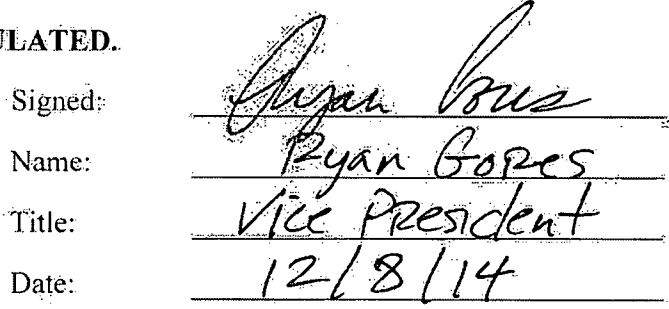 ULATED.
Signed: Ryan Gores
Name: Ryan Gores
Title: Vice President
Date: 12/8/14